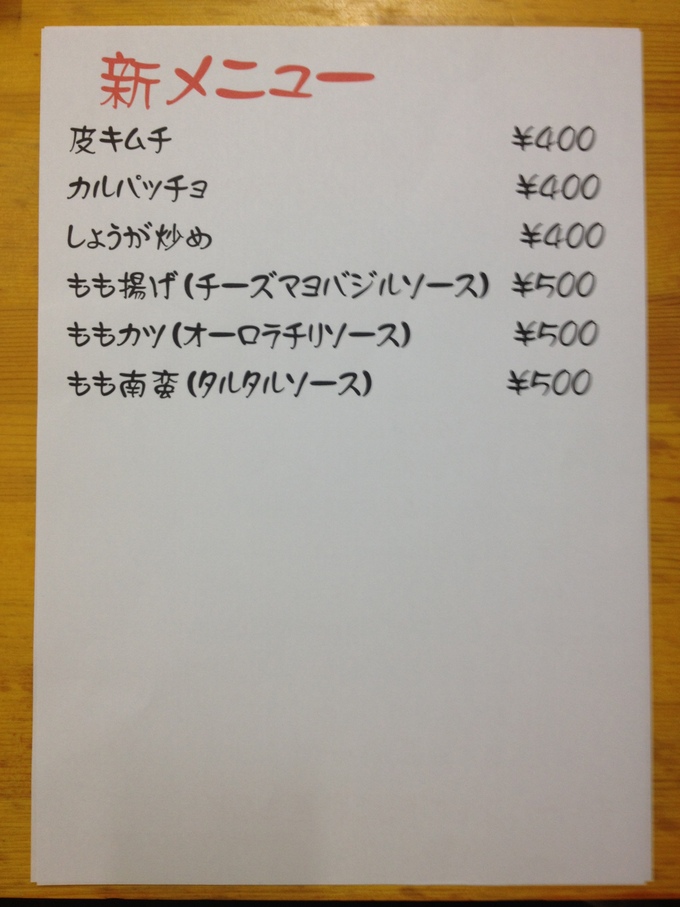 新メニュー
皮キムチ ¥400
カルパッチョ ¥400
しょうが炒め ¥400
もも揚げ(チーズマヨバジルソース) ¥500
ももカツ(オーロラチリソース) ¥500
もも南蛮(タルタルソース) ¥500